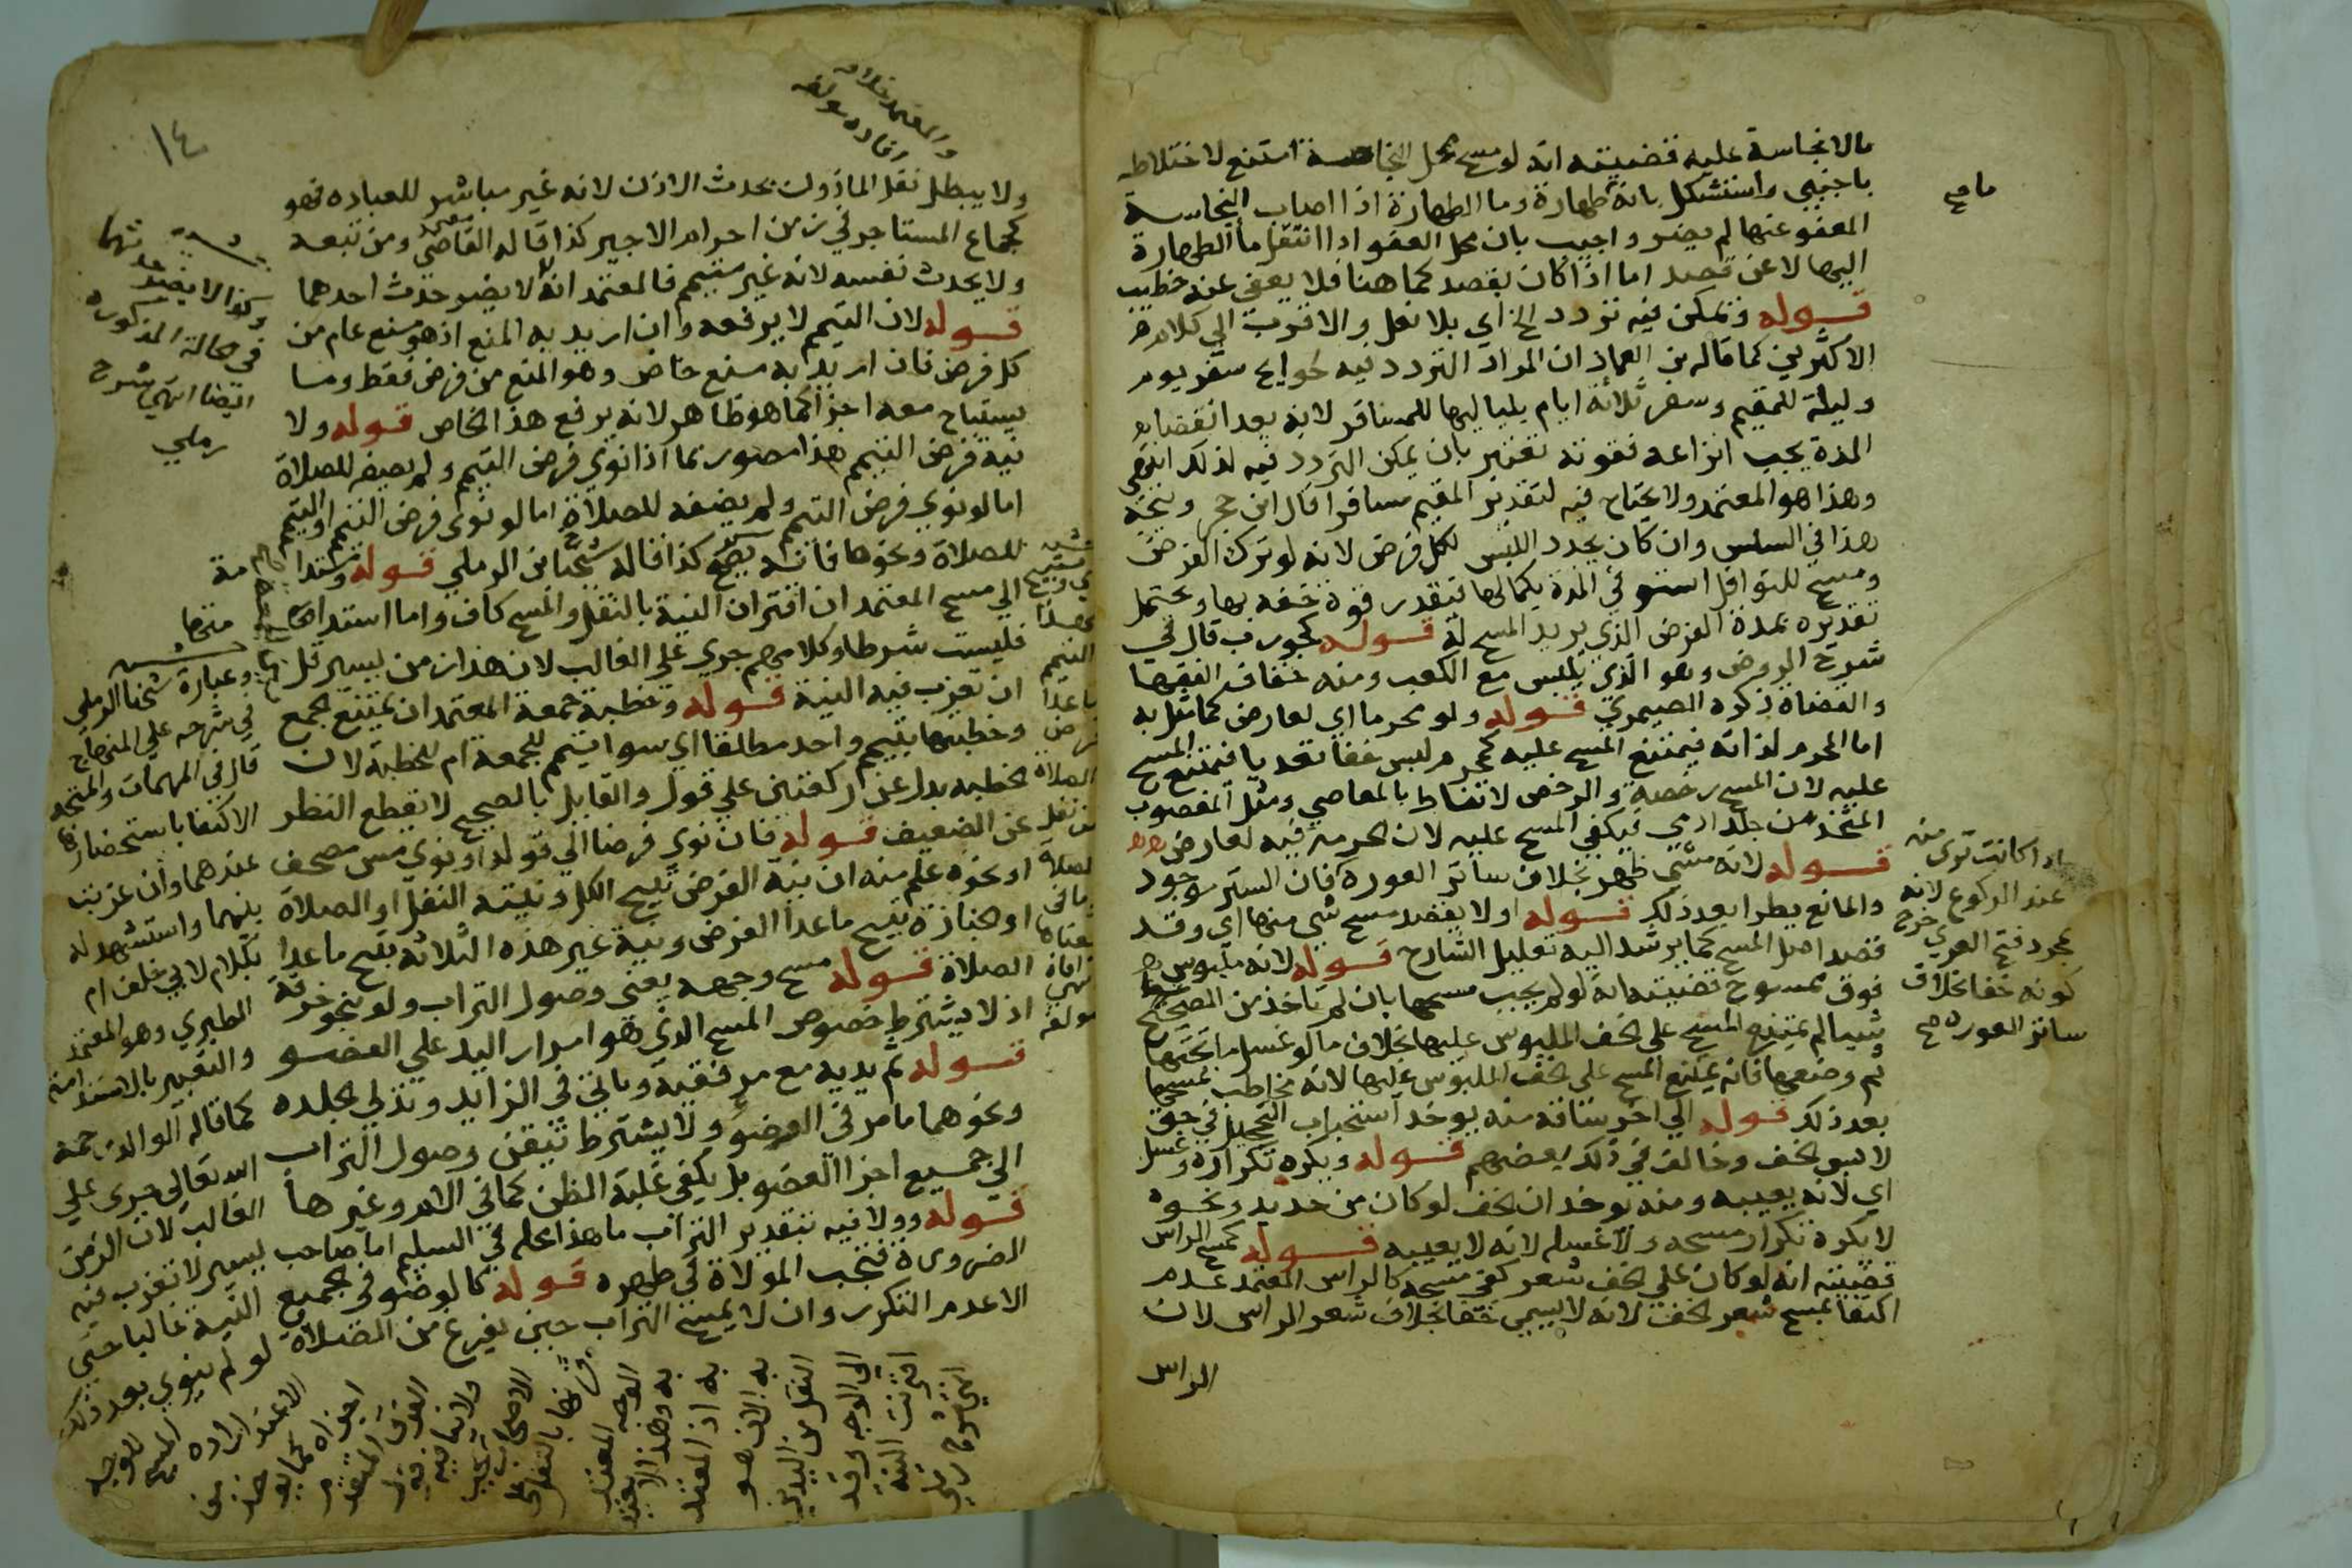 مالا نجاسة عليه قضيته انه لو مسح محل النجاسة امتنع لاختلاطه
باجنبي واستشكل بانه طهارة وما الطهارة اذا اصاب النجاسة
المعفو عنها لم يضر واجيب بان محل العفو اذا انتقل ما الطهارة
اليها لا عن قصد اما اذا كان بقصد كما هنا فلا يعفى عنه خطيب
قوله ويمكن فيه تردد الخ اي بلا نعل والاقرب الي كلام
الاكثرين كما قاله بن العماد ان المراد التردد فيه لحوايج سفر يوم
وليلة للمقيم وسفر ثلاثة ايام بلياليها للمسافر لانه بعد انقضا
المدة يجب انزاعه فقوته تعتبر بان يمكن التردد فيه لذلك انتهى
وهذا هو المعتمد ولا يحتاج فيه لتقدير المقيم مسافرا قال ابن حجر ويتجه
هذا في السلس وان كان يجدد اللبس لكل فرض لانه لو ترك الفرض
ومسح للنوافل استوفي المدة بكمالها فتقدر قوة خفه بها ويحتمل
تقديره بمدة الفرض الذي يريد المسح له قوله كجورب قال في
شرح الروض وهو الذي يلبس مع الكعب ومنه خفاف الفقها
والقضاة ذكره الصيمري قوله ولو محرما اي لعارض كما مثل به
اما المحرم لذاته فيمتنع المسح عليه كمحرم لبس خفا تعديا فيمتنع المسح
عليه لان المسح رخصة والرخص لا تناط بالمعاصي ومثل المغصوب
المتخذ من جلد ادمي فيكفي المسح عليه لان الحرمة فيه لعارض
قوله لانه متى ظهر بخلاف ساتر العورة فان الستر موجود
والمانع يطرا بعد ذلك قوله او لا يقصد مسح شي منها اي وقد
قصد اصل المسح كما يرشد اليه تعليل الشارح قوله لانه ملبوس
فوق ممسوح قضيته انه لو لم يجب مسحها بان لم تاخذ من الصحيح
شيا لم يمتنع المسح على الخف الملبوس عليها بخلاف ما لو غسل ما تحتها
ثم وضعها فانه يمتنع المسح على الخف الملبوس عليها لانه مخاطب بمسحها
بعد ذلك قوله الي اخر ساقه منه يوخذ استحباب التحجيل في حق
لابس الخف وخالف في ذلك بعضهم قوله ويكره تكراره وغسل
اي لانه يعيبه ومنه يوخذ ان الخف لو كان من حديد ونحوه
لا يكره تكرار مسحه ولا غسله لانه لا يعيبه قوله كمسح الراس
قضيته انه لو كان على الخف شعر كفى مسحه كالراس المعتمد عدم
اكتفا بمسح شعر الخف لانه لا يسمى خفا بخلاف شعر الراس لان
الراس
ما مح
اذا كانت ترى منه
عند الركوع لانه
بمجرد فتح العرى خرج
كونه خفا بخلاف
ساتر العورة مح
١٤
والمعتمد خلافه
افاده مولفه
ولا يبطل نقل الماذون بحدث الاذن لانه غير مباشر للعباده فهو
كجماع المستاجر في زمن احرام الاجير كذا قاله القاضي ومن تبعه
ولا يحدث نفسه لانه غير متيمم فالمعتمد انه لا يضر حدث احدهما
قوله لان التيمم لا يرفعه وان اريد به المنع اذ هو منع عام من
كل فرض فان اريد به منع خاص وهو المنع من فرض فقط وما
يستباح معه اجزا كما هو ظاهر لانه يرفع هذا الخاص قوله ولا
نية فرض التيمم هذا مصور بما اذا نوى فرض التيمم ولم يضفه للصلاة
اما لو نوى فرض التيمم ولم يضفه للصلاة اما لو نوى فرض التيمم او التيمم
للصلاة ونحوها فانه يصح كذا قاله شيخنا الرملي قوله
الي مسح المعتمد ان اقتران النية بالنقل والمسح كاف واما استدامتها
فليست شرطا وكلامهم جرى على الغالب لان هذا زمن يسير قل
ان تعزب فيه النية قوله وخطبة جمعة المعتمد ان يمتنع جمع
وخطبتها بتيمم واحد مطلقا اي سوا تيمم للجمعة ام للخطبة لان
الخطبه بدل عن ركعتين على قول والقايل بالصحيح لا يقطع النظر
عن الضعيف قوله فان نوى فرضا الي قوله او نوى مس مصحف
او نحوه علم منه ان نية الفرض تبيح الكل ونية النفل او الصلاة
او الجنازة تبيح ما عدا الفرض ونية غير هذه الثلاثة تبيح ما عدا
الصلاة قوله مسح وجهه يعني وصول التراب ولو بنحو خرقة
اذ لا يشترط خصوص المسح الذي هو امرار اليد على العضو
قوله ثم يديه مع مرفقيه وياتي في الزايد وتدلي الجلده
ونحوهما ما مر في الوضو ولا يشترط تيقن وصول التراب
الي جميع اجزا العضو بل يكفي غلبة الظن كما في الام وغيرها
قوله وولا فيه بتقدير التراب ما هذا محله في السليم اما صاحب
الضرورة فتجب الموالاة في طهره قوله كالوضو في الجميع
الا عدم التكرر وان لا يمسح التراب حين يفرغ من الصلاة
وكذا لا يضر حدثهما
في الحالة المذكورة
ايضا انتهى شرح
رملي
وعبارة شيخنا الرملي
في شرحه على المنهاج
قال في المهمات والمتجه
الاكتفا باستحضارها
عندهما وان عزبت
بينهما واستشهد له
بكلام لابي خلف
الطبري وهو المعتمد
والتعبير بالاستدامة
كما قاله الوالد رحمه
الله تعالى جرى علي
الغالب لان الزمن
يسير لا تعزب فيه
النية غالبا حتى
لو لم ينوي بعد ذلك
الا عند ارادة المسح للوجه